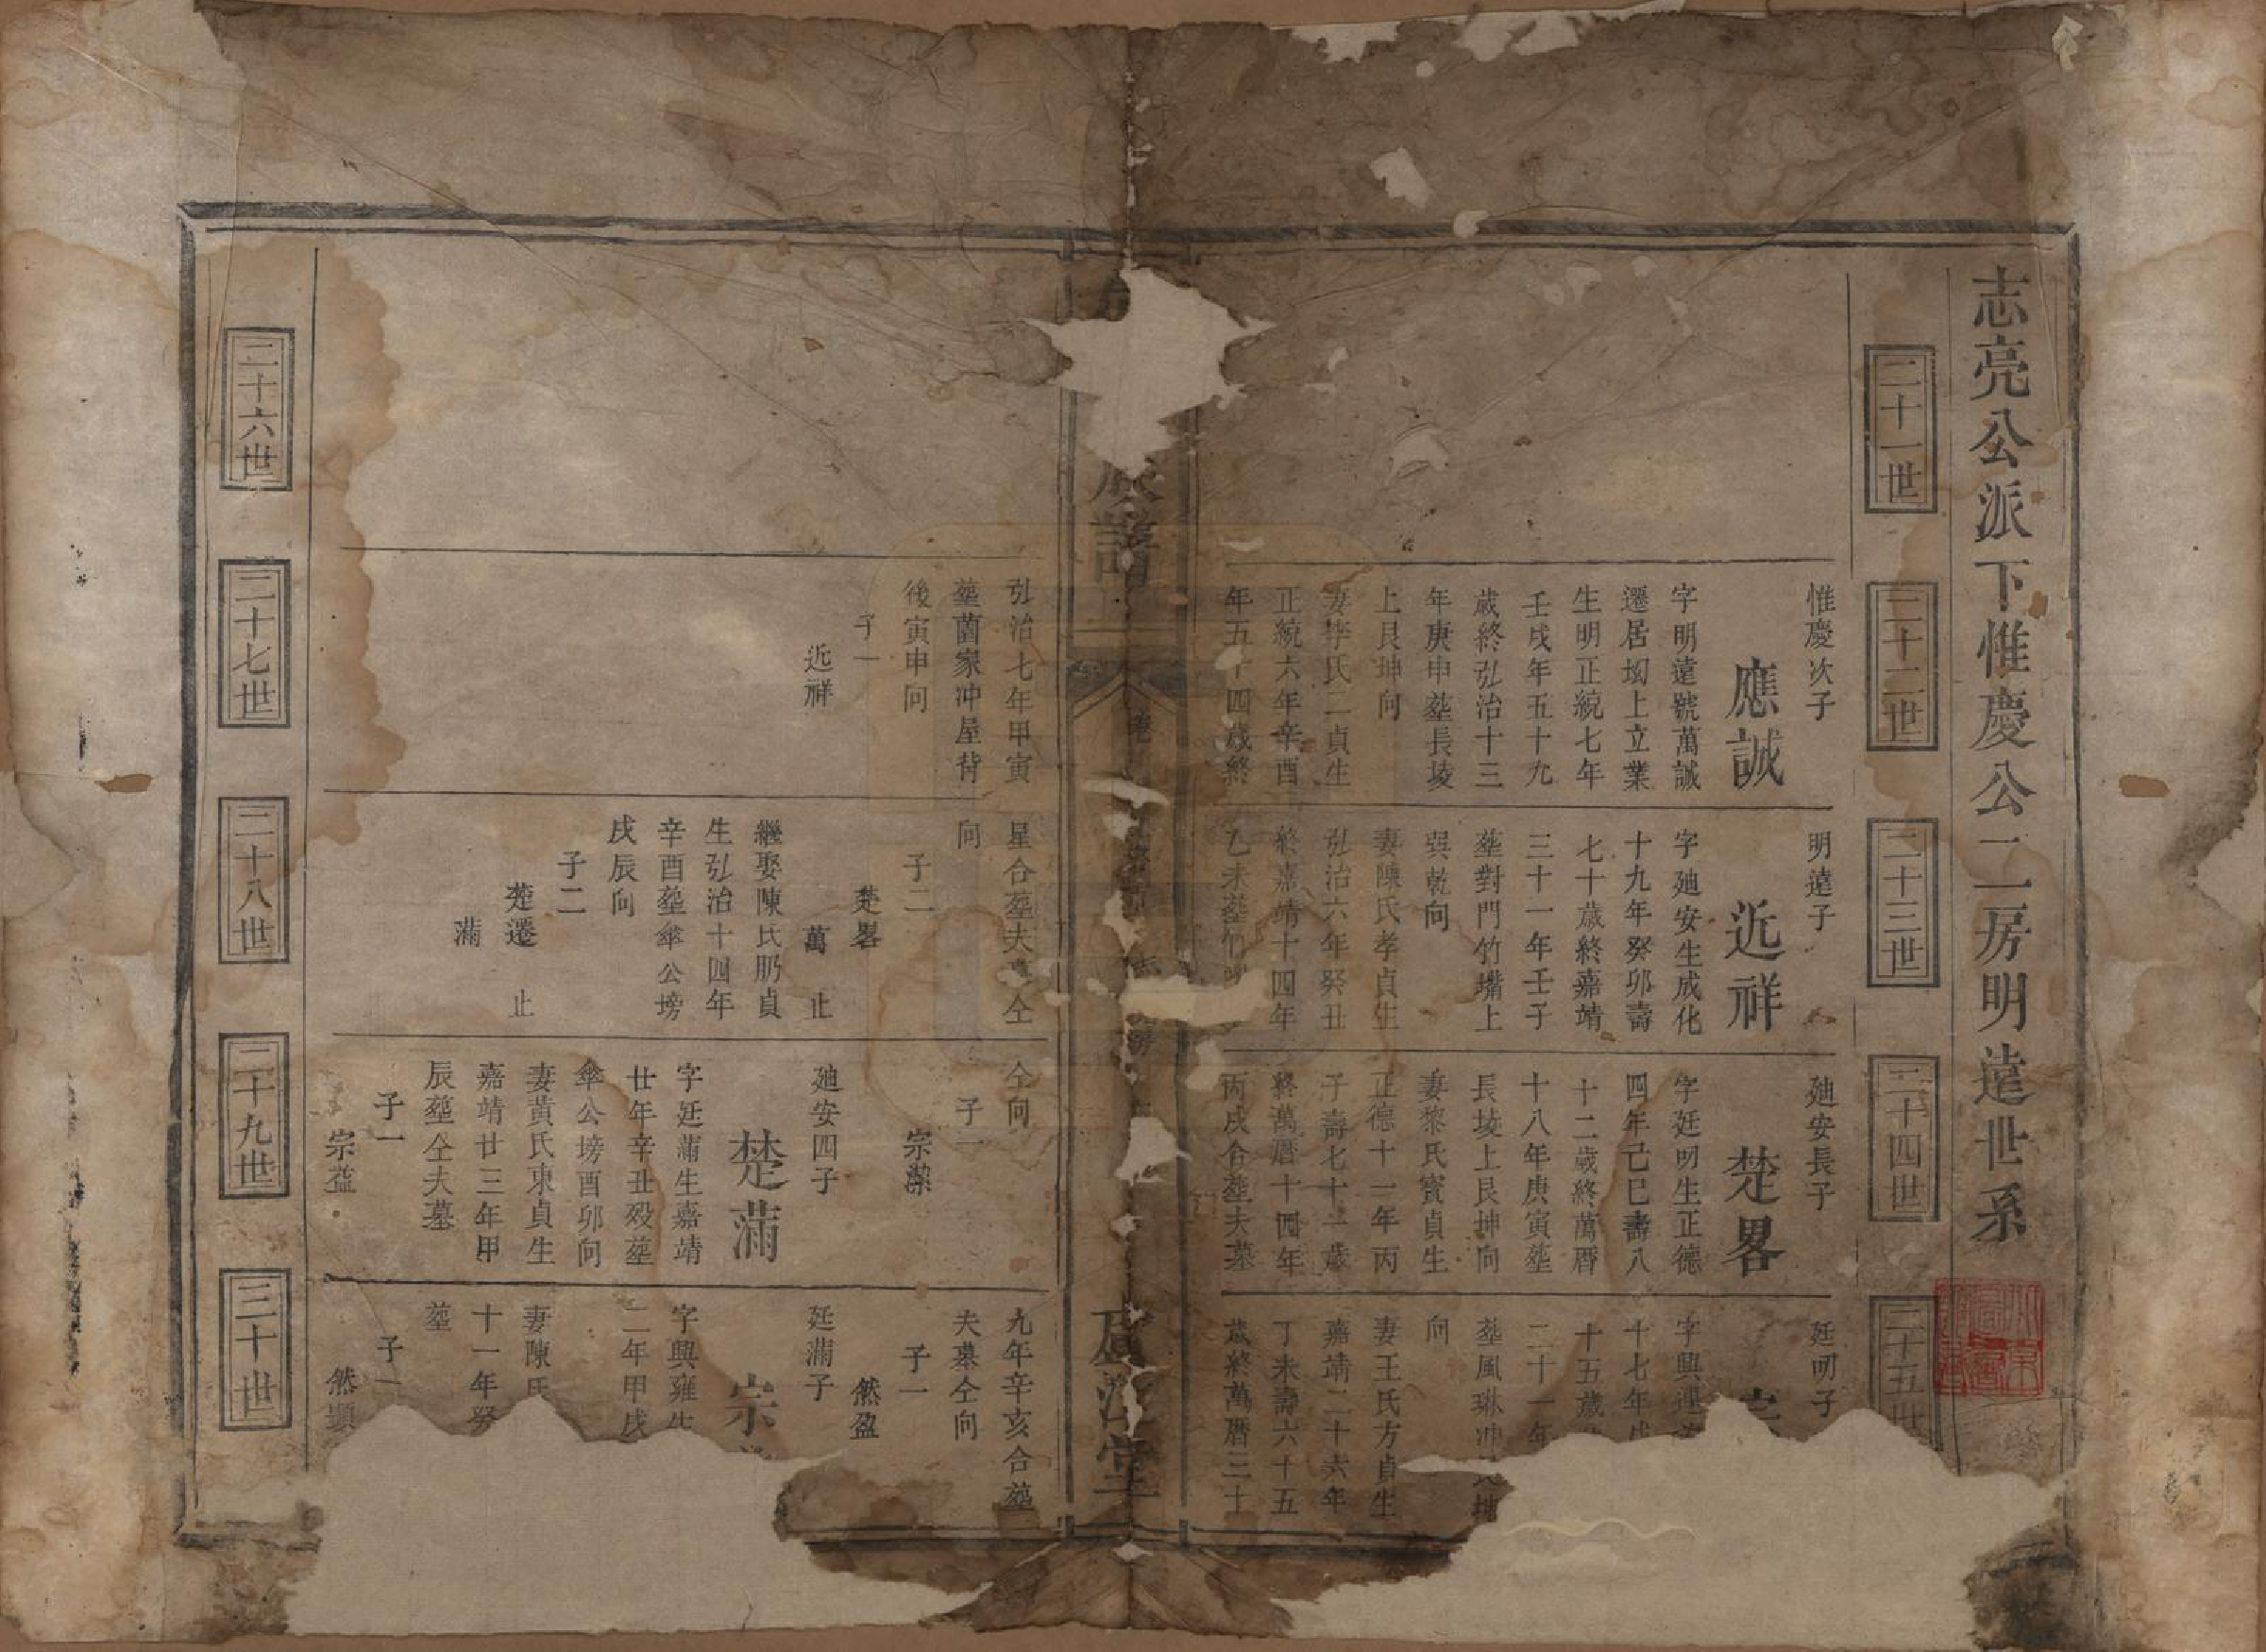 志亮公派下惟慶公二房明遠世系
二十一世
二十二世
二十三世
二十四世
二十五世
惟慶次子
應誠
字明遠號萬誠
遷居坳上立業
生明正統七年
壬戌年五十九
歲終弘治十三
年庚申塟長堎
上艮坤向
妻李氏二貞生
正統六年辛酉
年五十四歲終
明遠子
近祥
字廸安生成化
十九年癸卯壽
七十歲終嘉靖
三十一年壬子
塟對門竹墈上
巽乾向
妻陳氏孝貞生
弘治六年癸丑
終嘉靖十四年
乙未塟竹
廸安長子
楚畧
字廷明生正德
四年己巳壽八
十二歲終萬曆
十八年庚寅塟
長堎上艮坤向
妻黎氏賓貞生
正德十一年丙
子壽七十一歲
終萬曆十四年
丙戌合塟夫墓
廷明子
字興
十七年
十五歲
二十一年
塟風琳冲
向
妻王氏方貞生
嘉靖二十六年
丁未壽六十五
歲終萬曆三十
族譜
卷
廬江堂
弘治七年甲寅
塟菌家冲屋背
後寅申向
子一
近祥
星合塟夫墓仝
向
子二
楚畧
萬 止
繼娶陳氏肕貞
生弘治十四年
辛酉塟傘公塝
戌辰向
子二
楚遷 止
滿
仝向
子一
宗藻
廸安四子
楚滿
字廷滿生嘉靖
廿年辛丑歿塟
傘公塝酉卯向
妻黃氏東貞生
嘉靖廿三年甲
辰塟仝夫墓
子一
宗益
九年辛亥合塟
夫墓仝向
子一
然盈
廷滿子
宗
字興雍生
二年甲戌
妻陳氏
十一年癸
塟
子一
然顯
二十六世
二十七世
二十八世
二十九世
三十世